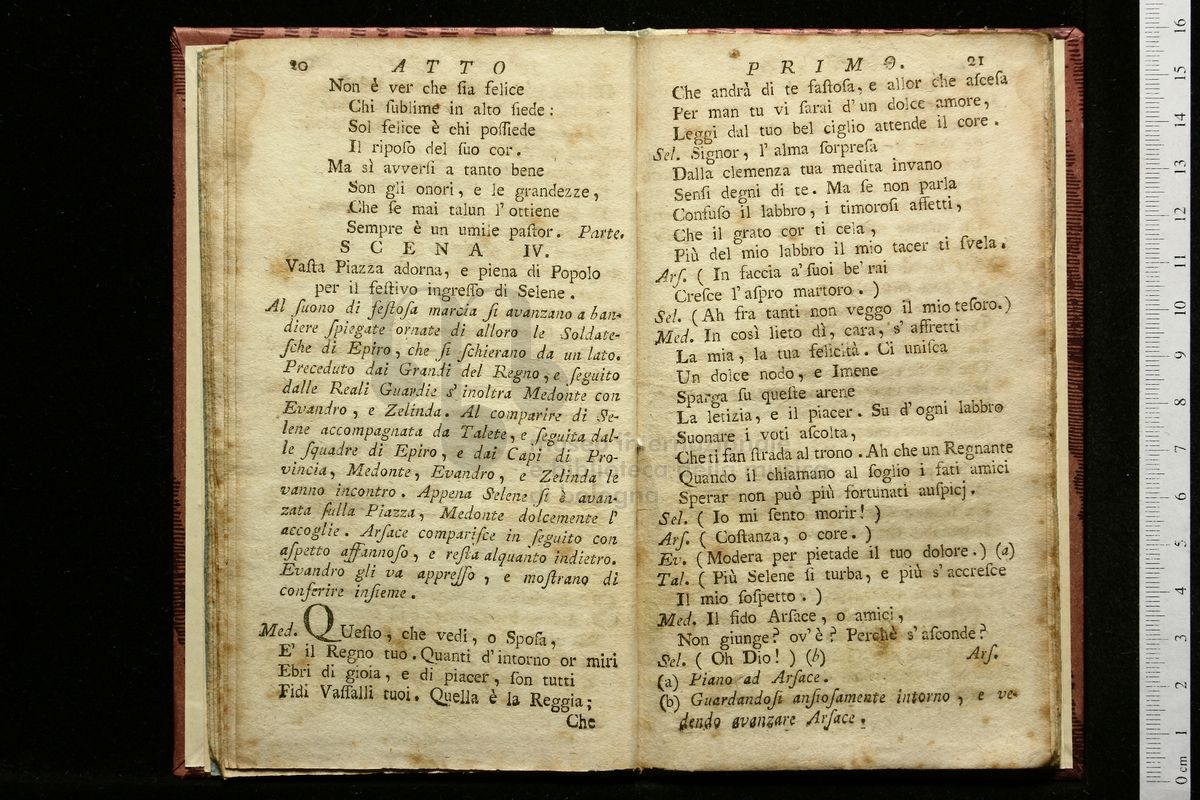 20 ATTO
Non è ver che ſia felice
Chi ſublime in alto ſiede:
Sol felice è chi poſſiede
Il ripoſo del ſuo cor.
Ma sì avverſi a tanto bene
Son gli onori, e le grandezze,
Che ſe mai talun l'ottiene
Sempre è un umile paſtor. Parte.
SCENA IV.
Vaſta Piazza adorna, e piena di Popolo
per il feſtivo ingreſſo di Selene.
Al ſuono di feſtoſa marcia ſi avanzano a ban-
diere ſpiegate ornate di alloro le Soldate-
ſche di Epiro, che ſi ſchierano da un lato.
Preceduto dai Grandi del Regno, e ſeguito
dalle Reali Guardie s'inoltra Medonte con
Evandro, e Zelinda. Al comparire di Se-
lene accompagnata da Talete, e ſeguita dal-
le ſquadre di Epiro, e dai Capi di Pro-
vincia, Medonte, Evandro, e Zelinda le
vanno incontro. Appena Selene ſi è avan-
zata ſulla Piazza, Medonte dolcemente l'
accoglie. Arſace compariſce in ſeguito con
aſpetto affannoſo, e reſta alquanto indietro.
Evandro gli va appreſſo, e moſtrano di
conferire inſieme.
Med. QUeſto, che vedi, o Spoſa,
E' il Regno tuo. Quanti d'intorno or miri
Ebri di gioia, e di piacer, ſon tutti
Fidi Vaſſalli tuoi. Quella è la Reggia;
Che
PRIMO. 21
Che andrà di te faſtoſa, e allor che aſceſa
Per man tu vi ſarai d'un dolce amore,
Leggi dal tuo bel ciglio attende il core.
Sel. Signor, l'alma ſorpreſa
Dalla clemenza tua medita invano
Senſi degni di te. Ma ſe non parla
Confuſo il labbro, i timoroſi affetti,
Che il grato cor ti cela,
Più del mio labbro il mio tacer ti ſvela.
Arſ. ( In faccia a' ſuoi be' rai
Creſce l'aſpro martoro. )
Sel. (Ah fra tanti non veggo il mio teſoro.)
Med. In così lieto dì, cara, s'affretti
La mia, la tua felicità. Ci uniſca
Un dolce nodo, e Imene
Sparga ſu queſte arene
La letizia, e il piacer. Su d'ogni labbro
Suonare i voti aſcolta,
Che ti fan ſtrada al trono. Ah che un Regnante
Quando il chiamano al ſoglio i fati amici
Sperar non può più fortunati auſpicj.
Sel. ( Io mi ſento morir! )
Arſ. ( Coſtanza, o core. )
Ev. (Modera per pietade il tuo dolore.) (a)
Tal. ( Più Selene ſi turba, e più s'accreſce
Il mio ſoſpetto. )
Med. Il fido Arſace, o amici,
Non giunge? ov'è? Perchè s'aſconde?
Sel. ( Oh Dio! ) (b) Arſ.
(a) Piano ad Arſace.
(b) Guardandoſi anſioſamente intorno, e ve-
dendo avanzare Arſace.